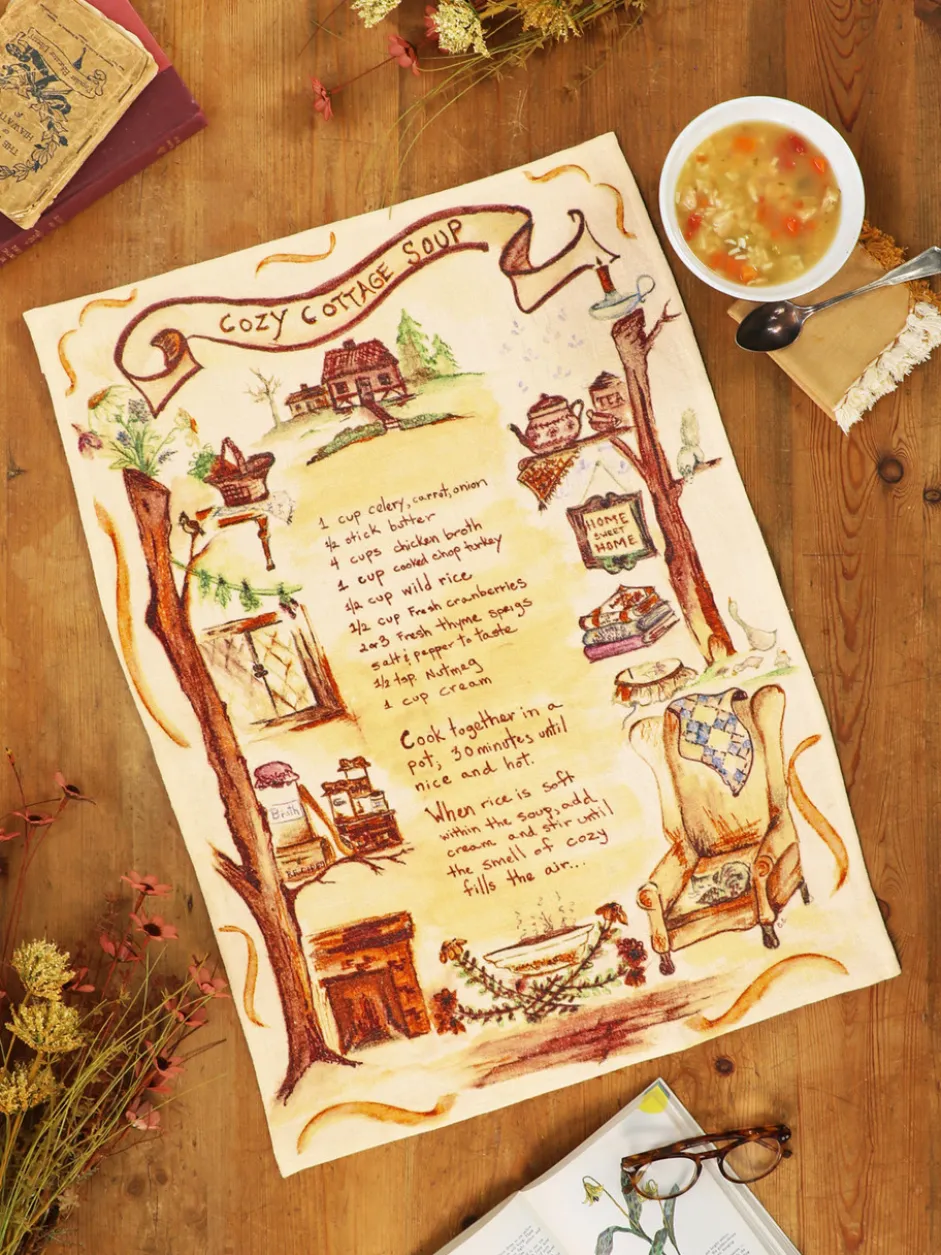 COZY COTTAGE SOUP
TEA
HOME
SWEET
HOME
1 cup celery, carrot, onion
1/2 stick butter
4 cups chicken broth
1 cup cooked chop turkey
1/2 cup wild rice
1/2 cup Fresh cranberries
2 or 3 Fresh thyme sprigs
salt & pepper to taste
1/2 tsp. Nutmeg
1 cup cream
Cook together in a
pot, 30 minutes until
nice and hot.
When rice is soft
within the soup, add
cream and stir until
the smell of cozy
fills the air...
Broth